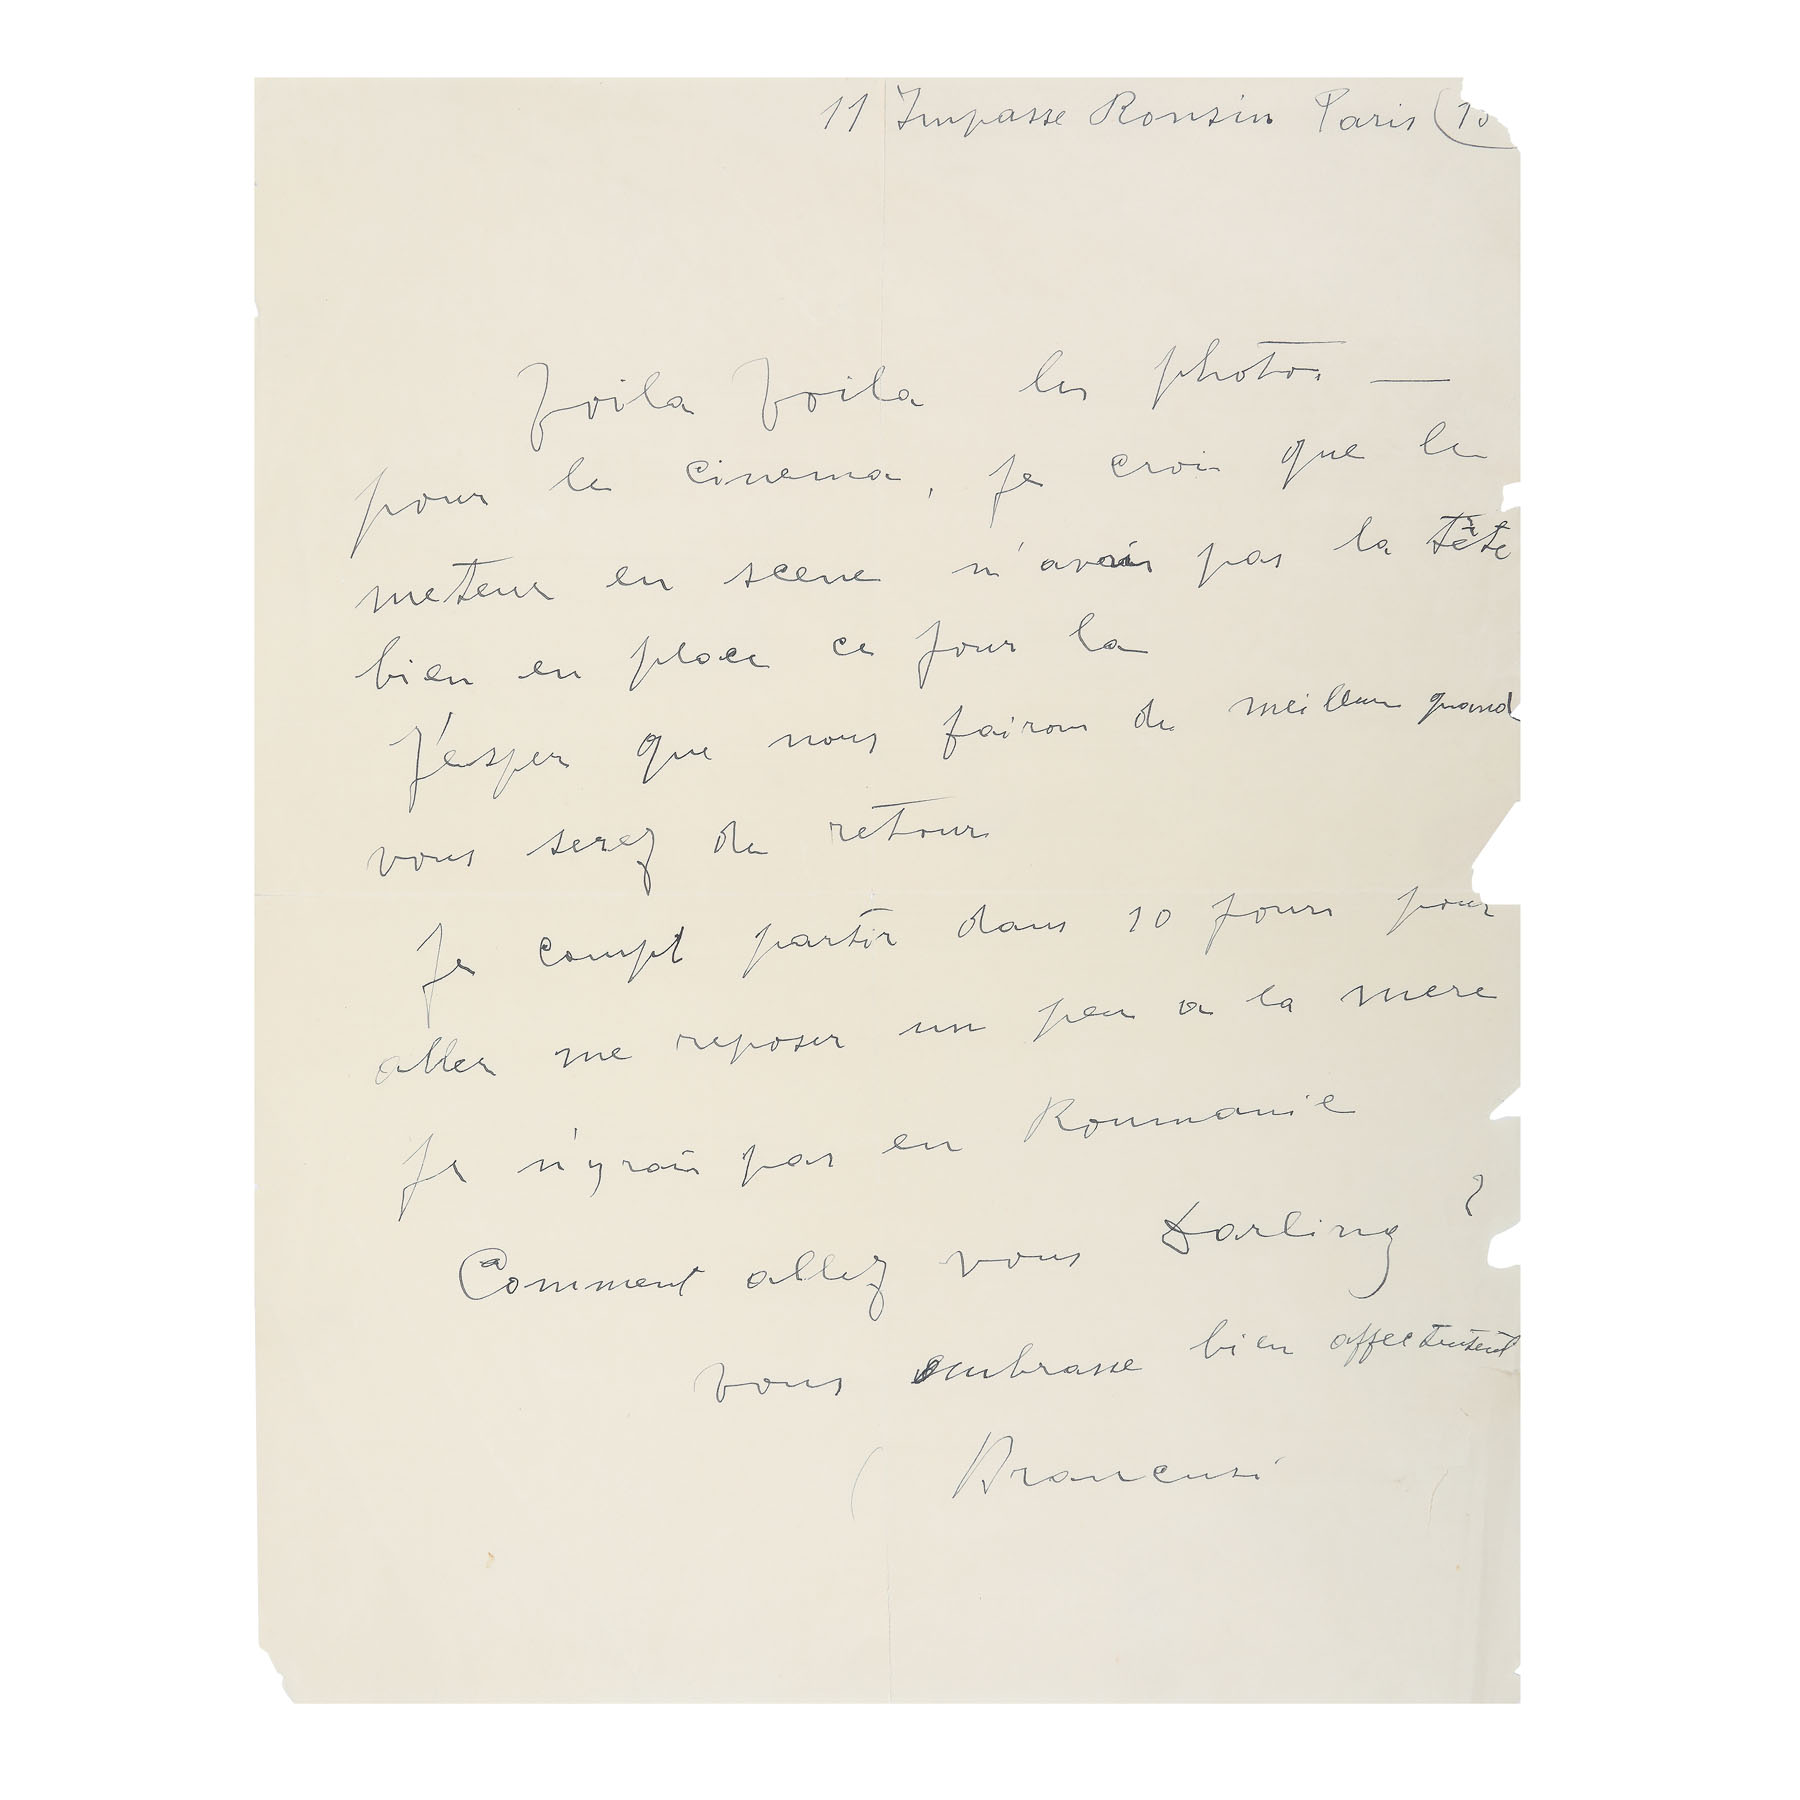 11 Impasse Ronsin Paris (15
Voila Voila les photos —
pour le cinema, je croi que le
meteur en scene n'avais pas la tête
bien en place ce jour la
J'esper que nous fairons de meilleur quand
vous serez de retour
Je compt partir dans 10 jours pour
aller me reposer un peu a la mere
Je n'yrais pas en Roumanie
Comment allez vous Darling ?
vous embrasse bien
Brancusi